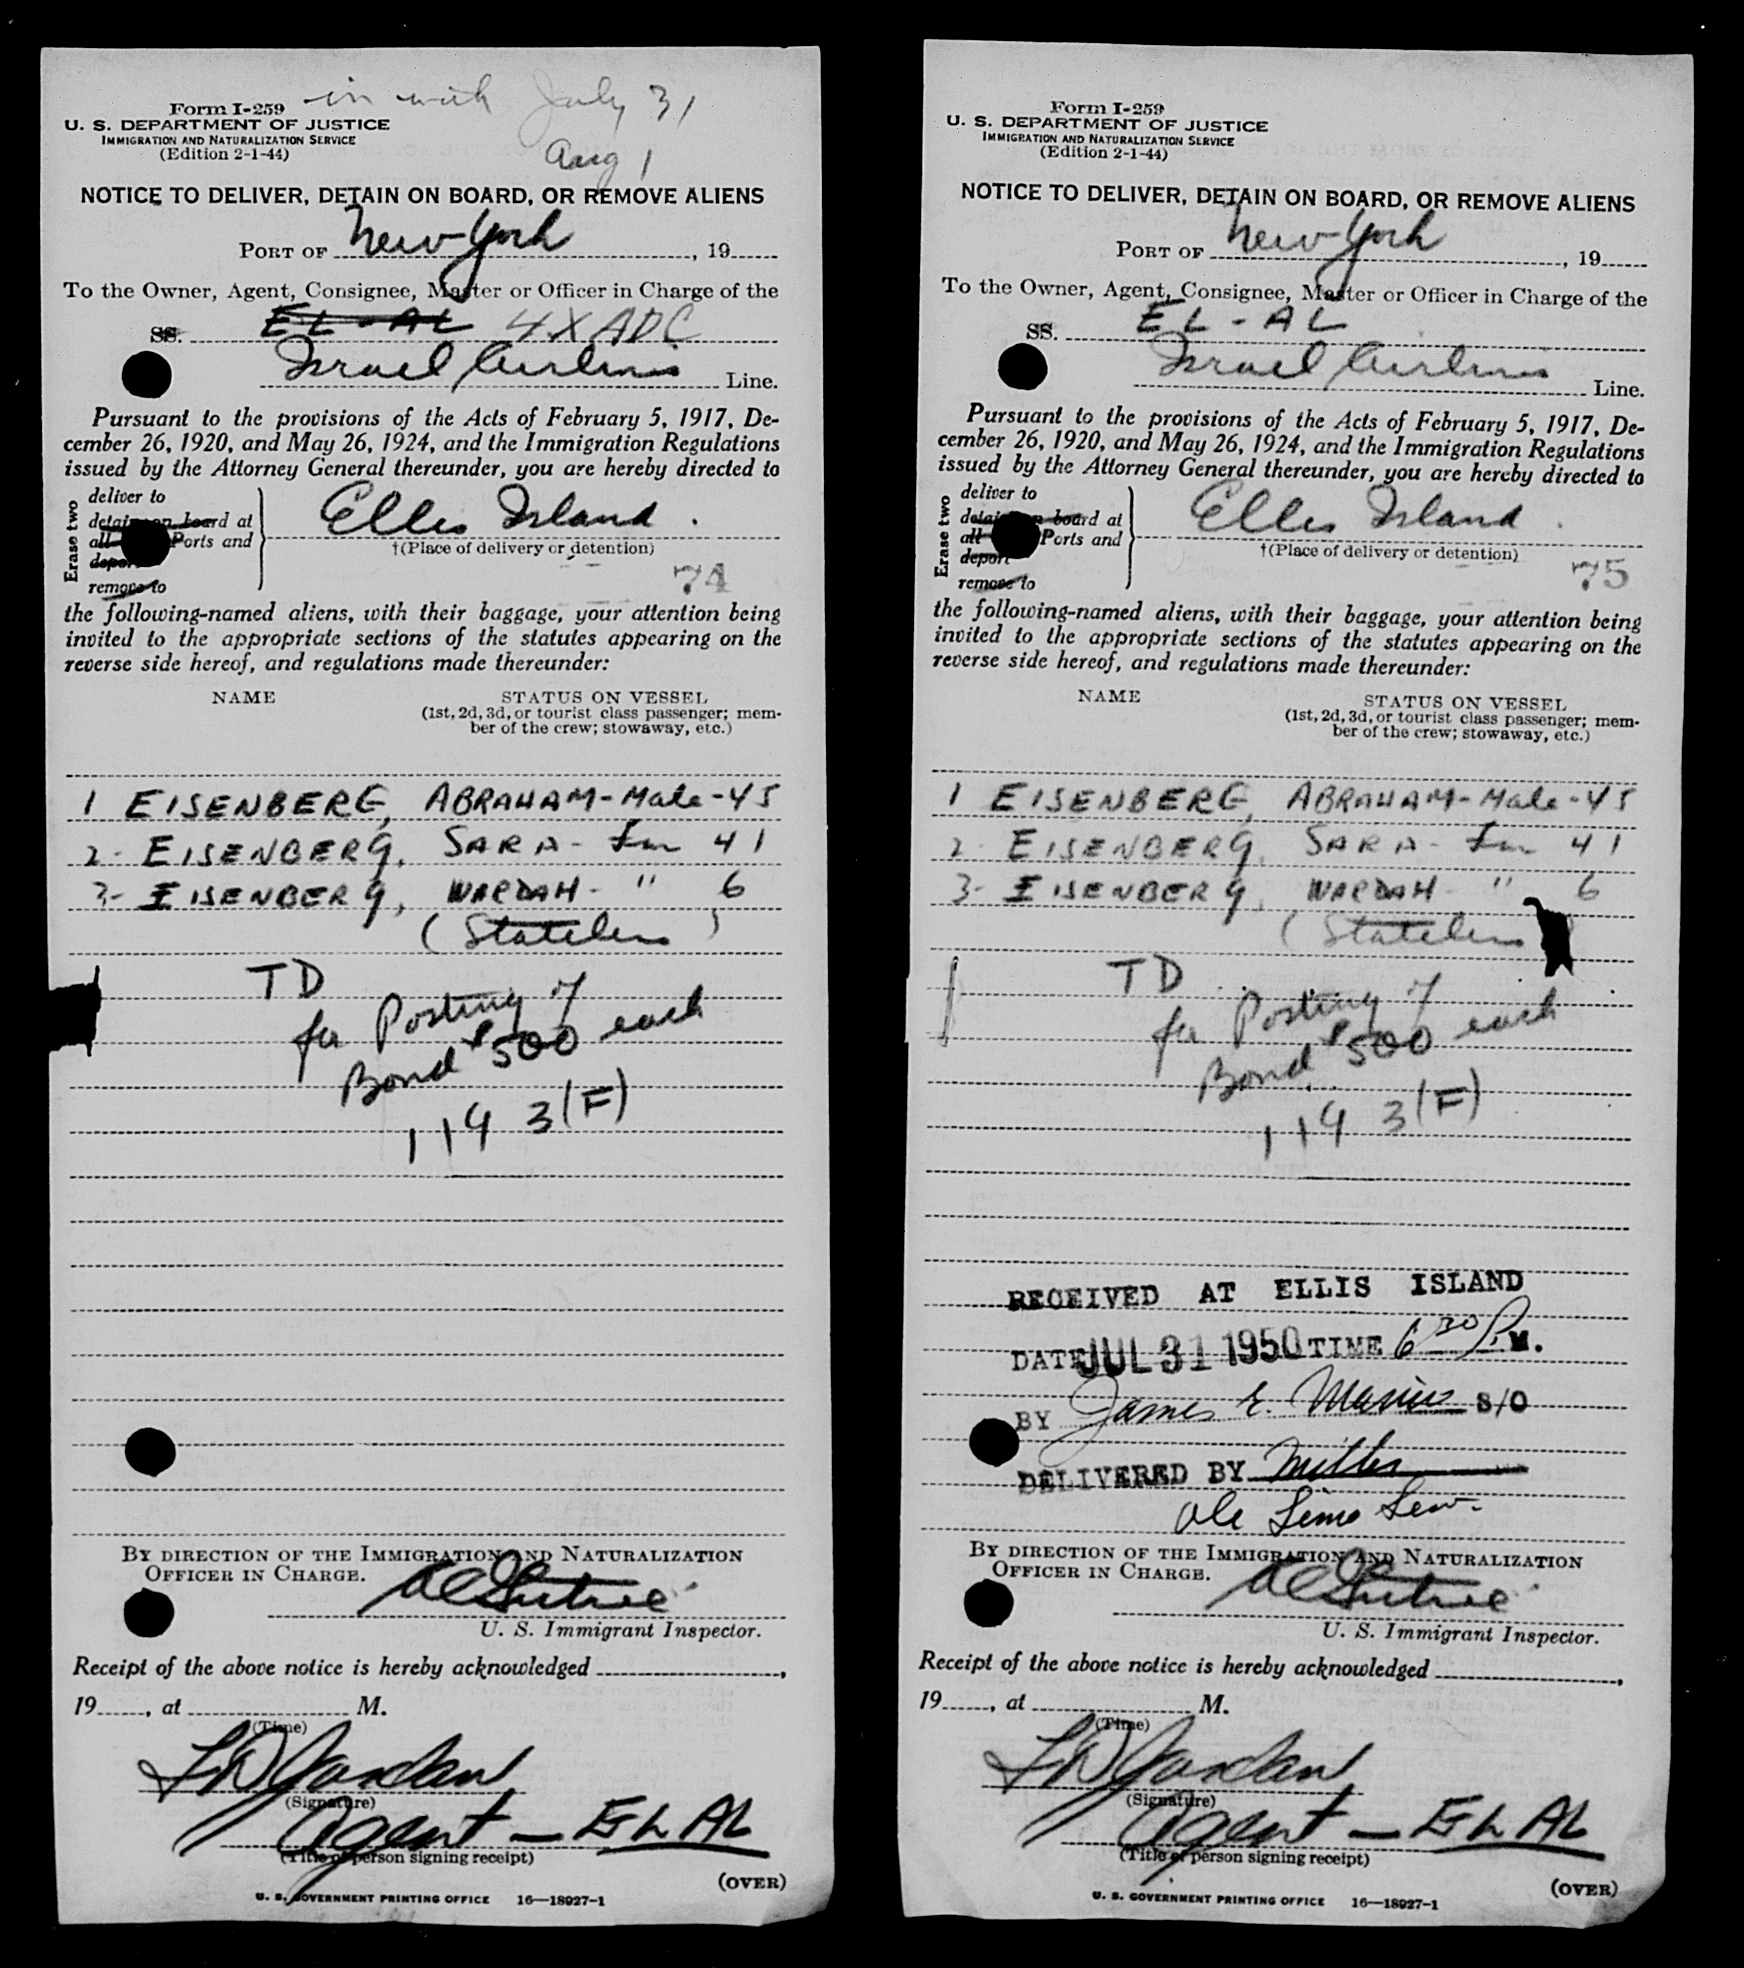 in with July 31
Aug 1
Form I-259
U. S. DEPARTMENT OF JUSTICE
IMMIGRATION AND NATURALIZATION SERVICE
(Edition 2-1-44)
NOTICE TO DELIVER, DETAIN ON BOARD, OR REMOVE ALIENS
PORT OF New York, 19
To the Owner, Agent, Consignee, Master or Officer in Charge of the
SS. EL-AL 4XADC
Israel Airlines Line.
Pursuant to the provisions of the Acts of February 5, 1917, De-
cember 26, 1920, and May 26, 1924, and the Immigration Regulations
issued by the Attorney General thereunder, you are hereby directed to
Erase two
deliver to
detain on board at
all Ports and
deport
remove to
Ellis Island.
†(Place of delivery or detention)
74
the following-named aliens, with their baggage, your attention being
invited to the appropriate sections of the statutes appearing on the
reverse side hereof, and regulations made thereunder:
NAME STATUS ON VESSEL
(1st, 2d, 3d, or tourist class passenger; mem-
ber of the crew; stowaway, etc.)
1 EISENBERG, ABRAHAM - Male - 45
2 - EISENBERG, SARA - Fm 41
3 - EISENBERG, WARDAH - " 6
(Stateless)
TD
for Posting of
Bond $500 each
1193(F)
BY DIRECTION OF THE IMMIGRATION AND NATURALIZATION
OFFICER IN CHARGE.
U. S. Immigrant Inspector.
Receipt of the above notice is hereby acknowledged ,
19 , at M.
(Time)
Jordan
(Signature)
Agent - EL AL
(Title of person signing receipt)
(OVER)
U. S. GOVERNMENT PRINTING OFFICE 16—18927-1
Form I-259
U. S. DEPARTMENT OF JUSTICE
IMMIGRATION AND NATURALIZATION SERVICE
(Edition 2-1-44)
NOTICE TO DELIVER, DETAIN ON BOARD, OR REMOVE ALIENS
PORT OF New York, 19
To the Owner, Agent, Consignee, Master or Officer in Charge of the
SS. EL-AL
Israel Airlines Line.
Pursuant to the provisions of the Acts of February 5, 1917, De-
cember 26, 1920, and May 26, 1924, and the Immigration Regulations
issued by the Attorney General thereunder, you are hereby directed to
Erase two
deliver to
detain on board at
all Ports and
deport
remove to
Ellis Island.
†(Place of delivery or detention)
75
the following-named aliens, with their baggage, your attention being
invited to the appropriate sections of the statutes appearing on the
reverse side hereof, and regulations made thereunder:
NAME STATUS ON VESSEL
(1st, 2d, 3d, or tourist class passenger; mem-
ber of the crew; stowaway, etc.)
1 EISENBERG, ABRAHAM - Male - 45
2 - EISENBERG, SARA - Fm 41
3 - EISENBERG, WARDAH - " 6
(Stateless)
TD
for Posting of
Bond $500 each
1193(F)
RECEIVED AT ELLIS ISLAND
DATE JUL 31 1950 TIME 6 30 P.M.
BY James E. S/O
DELIVERED BY Miller
BY DIRECTION OF THE IMMIGRATION AND NATURALIZATION
OFFICER IN CHARGE.
U. S. Immigrant Inspector.
Receipt of the above notice is hereby acknowledged ,
19 , at M.
(Time)
Jordan
(Signature)
Agent - EL AL
(Title of person signing receipt)
(OVER)
U. S. GOVERNMENT PRINTING OFFICE 16—18927-1